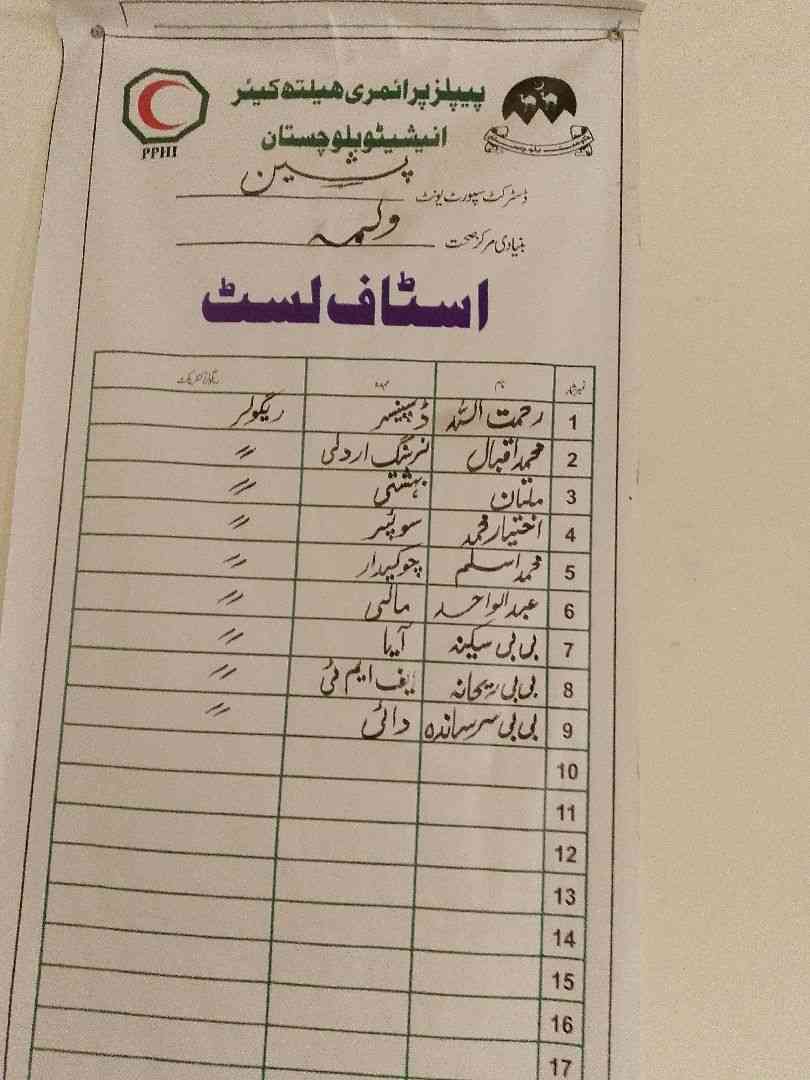 پیپلز پرائمری ہیلتھ کیئر
انیشیٹو بلوچستان
PPHI
ڈسٹرکٹ سپورٹ یونٹ پشین
بنیادی مرکز صحت ولمہ
اسٹاف لسٹ
نمبر شمار نام عہدہ
1 رحمت اللہ ڈسپنسر ریگولر
2 محمد اقبال نرسنگ اردلی 〃
3 ملتان بہشتی 〃
4 اختیار محمد سوئپر 〃
5 محمد اسلم چوکیدار 〃
6 عبدالواحد مالی 〃
7 بی بی سکینہ آیا 〃
8 بی بی ریحانہ ایف ایم ٹی 〃
9 بی بی دائی 〃
10
11
12
13
14
15
16
17